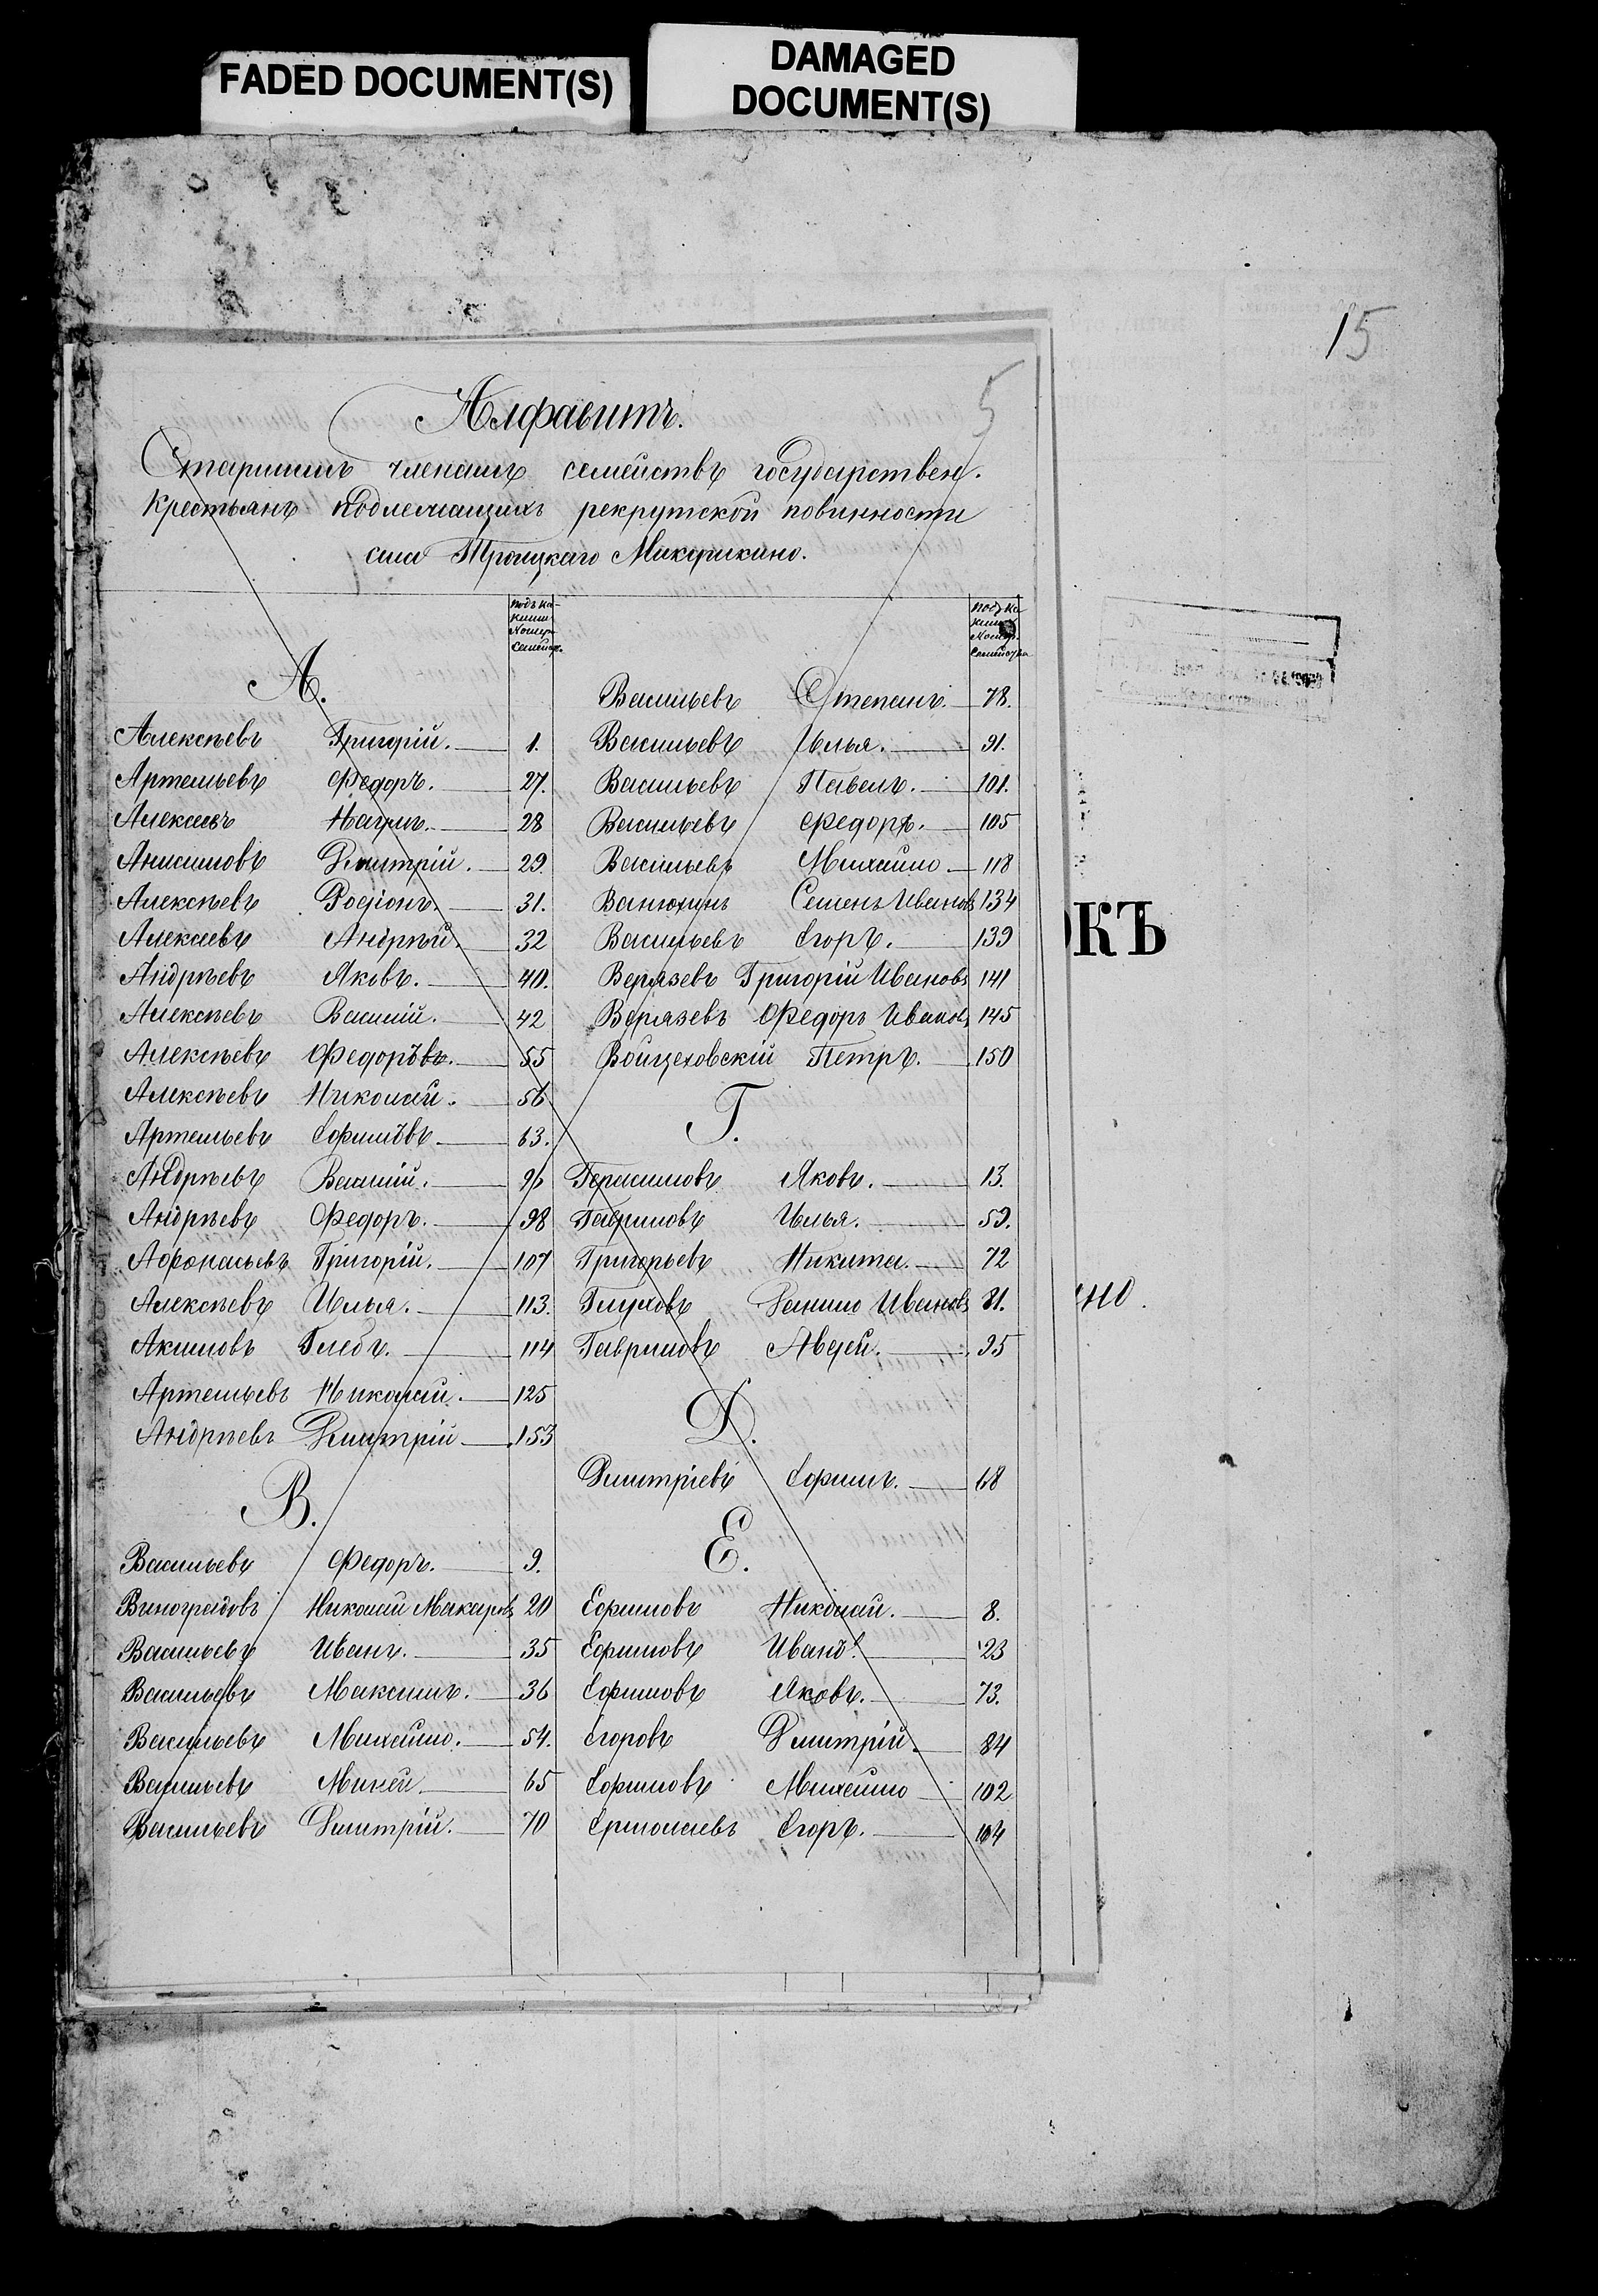 FADED DOCUMENT(S)
DAMAGED
DOCUMENT(S)
15
5
Алфавитъ.
Старшимъ членамъ семействъ государствен.
крестьянъ подлежащихъ рекрутской повинности
села Троицкаго
подъ ка-
кимъ
Номер.
Семейст.
А.
Алексѣевъ Григорій. 1.
Артемьевъ Федоръ. 27.
Алексѣевъ Наумъ. 28
Анисимовъ Дмитрій. 29.
Алексѣевъ Родіонъ. 31.
Алексѣевъ Андрѣй. 32
Андрѣевъ Яковъ. 40.
Алексѣевъ Василій. 42
Алексѣевъ Федоръ. 55
Алексѣевъ Николай. 56
Артемьевъ Ефимъ. 63.
Андрѣевъ Василій. 96
Андрѣевъ Федоръ. 98
Афонасьевъ Григорій. 107
Алексѣевъ Илья. 113.
Акимовъ Глебъ. 114
Артемьевъ Николай. 125
Андрѣевъ Дмитрій 153
В.
Васильевъ Федоръ. 9.
Виноградовъ Николай Макаровъ 20
Васильевъ Иванъ. 35
Васильевъ Максимъ. 36
Васильевъ Михайло. 54.
Васильевъ Миней 65
Васильевъ Дмитрій. 70
подъ ка-
кимъ
Номер.
Семейства
Васильевъ Степанъ. 78.
Васильевъ Илья. 91.
Васильевъ Павелъ. 101.
Васильевъ Федоръ. 105
Васильевъ Михайло 118
Ванюхинъ Семенъ Ивановъ 134
Васильевъ Егоръ. 139
Верязевъ Григорій Ивановъ 141
Верязевъ Федоръ Ивановъ 145
Войцеховскій Петръ. 150
Г.
Герасимовъ Яковъ. 13.
Гавриловъ Илья. 59.
Григорьевъ Никита. 72
Глуховъ Данило Ивановъ 81.
Гавриловъ Авдей. 95
Д.
Дмитріевъ Ефимъ. 68
Е.
Ефимовъ Николай. 8.
Ефимовъ Иванъ. 23
Ефимовъ Яковъ. 73.
Егоровъ Дмитрій. 84
Ефимовъ Михайло 102
Ермолаевъ Егоръ. 104
КЪ